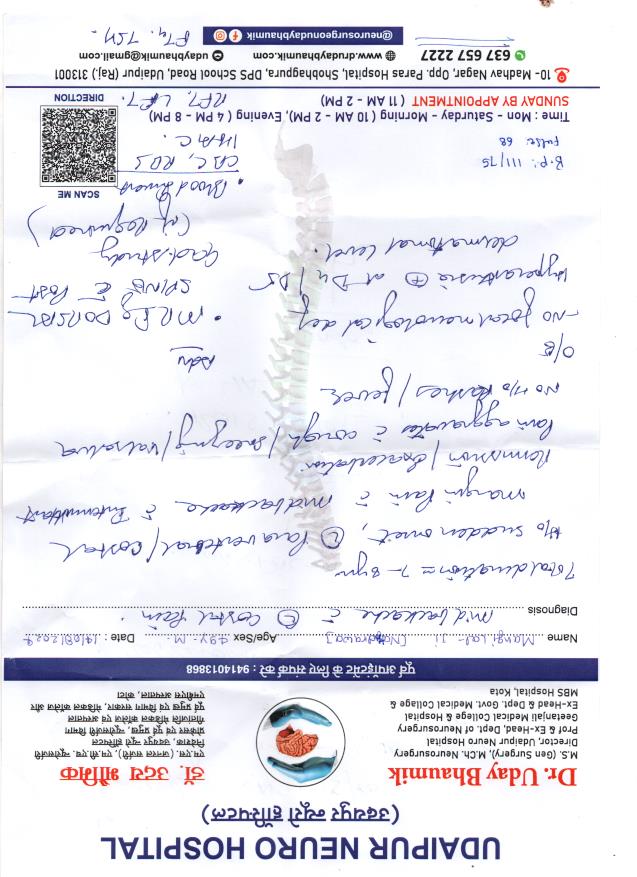 UDAIPUR NEURO HOSPITAL
(उदयपुर न्यूरो हॉस्पिटल)
Dr. Uday Bhaumik
M.S. (Gen Surgery), M.Ch. Neurosurgery
Director, Udaipur Neuro Hospital
Prof & Ex-Head, Dept. of Neurosurgery
Geetanjali Medical College & Hospital
Ex-Head & Dept. Govt. Medical Collage &
MBS Hospital, Kota
डॉ. उदय भौमिक
एम.एस. (जनरल सर्जरी), एम.सी.एच. न्यूरोसर्जरी
निदेशक, उदयपुर न्यूरो हॉस्पिटल
प्रोफेसर एवं पूर्व प्रमुख, न्यूरोसर्जरी विभाग
गीतांजलि मेडिकल कॉलेज एवं अस्पताल
पूर्व प्रमुख एवं विभाग सरकार, मेडिकल कॉलेज और
एमबीएस अस्पताल, कोटा
पूर्व अपॉइंटमेंट के लिए संपर्क करें : 9414013868
Name Mangi Lal Ji Age/Sex 49y - M Date : 14/08/2024
Diagnosis midbackache c̄ (L) costal Pain
Total duration = 7-8yr
H/o sudden onset, (L) Paravertebral/costal
margin Pain c̄ midbackache c̄ Intermittant
Remission/Exacerbation
Pain aggravates c̄ cough/sneezing/valsalva
No H/o Rashes/fever
O/E
- No focal neurological def
Hyperasthesia ⊕ at D4/D5
dermatomal level.
Adv
• MRI DORSAL
SPINE c̄ Post
Gad. study
(if Required)
• Blood Invest
CBC, RBS
HbA1C
RFT, LFT.
FT4. TSH.
B.P: 111/75
Pulse: 68
SCAN ME
DIRECTION
Time : Mon - Saturday - Morning (10 AM - 2 PM), Evening (4 PM - 8 PM)
SUNDAY BY APPOINTMENT (11 AM - 2 PM)
10- Madhav Nagar, Opp. Paras Hospital, Shobhagpura, DPS School Road, Udaipur (Raj.) 313001
637 657 2227 www.drudaybhaumik.com udaybhaumik@gmail.com
@neurosurgeonudaybhaumik